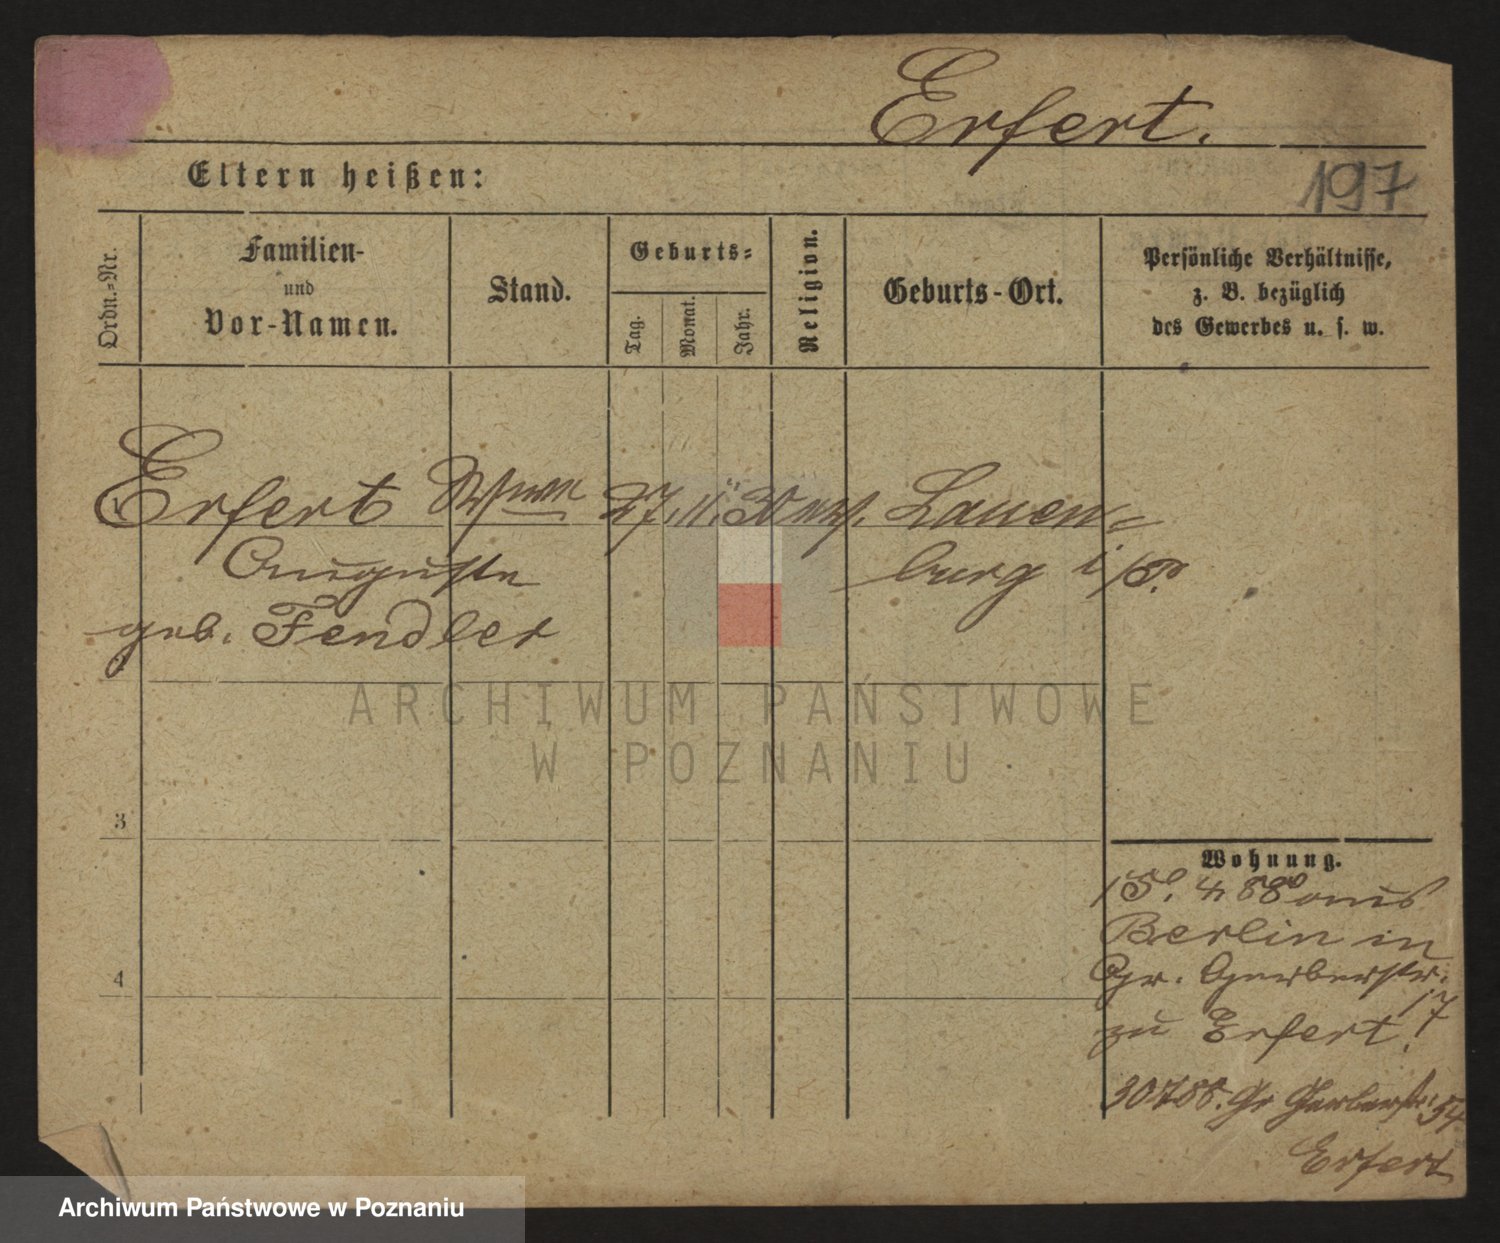 Erfert.
Eltern heißen:
197
Ordn.-Nr.
Familien-
und
Vor-Namen.
Stand.
Geburts-
Tag.
Monat.
Jahr.
Religion.
Geburts-Ort.
Persönliche Verhältnisse,
z. B. bezüglich
des Gewerbes u. s. w.
Erfert Wwe 27. 11. 30 ev. Lauen-
Auguste burg i/P.
geb. Fendler
ARCHIWUM PAŃSTWOWE
W POZNANIU
3
Wohnung.
15. 4 88 aus
Berlin in
Gr. Gerberstr.
17
zu Erfert.
4
30788. Gr Gerberstr. 54
Erfert
Archiwum Państwowe w Poznaniu